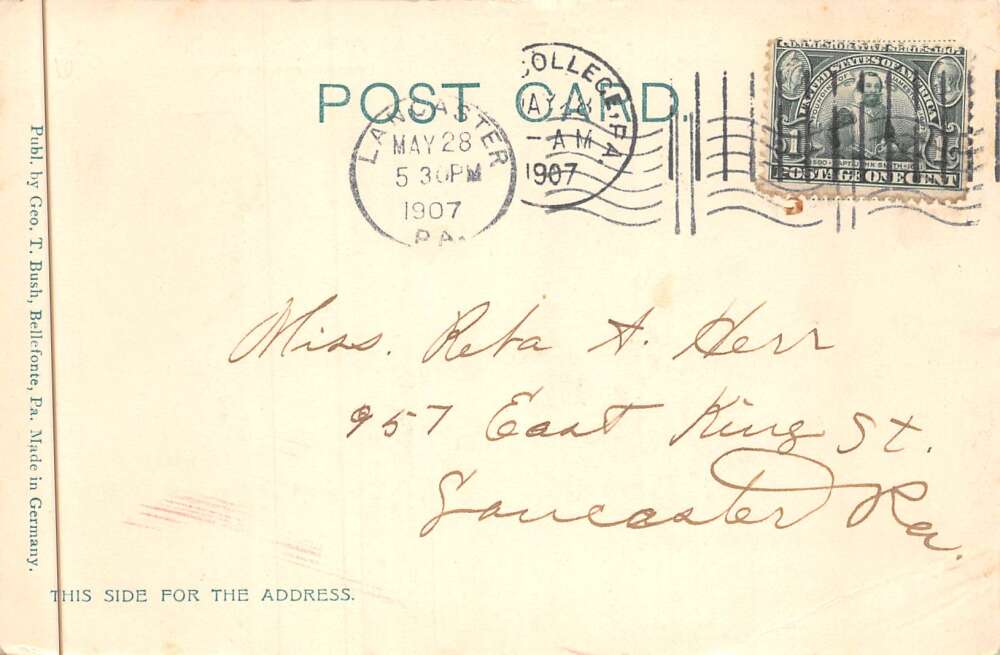 POST CARD.
LANCASTER
MAY 28
5 30 PM
1907
PA.
COLLEGE, PA.
MAY 28
-AM
1907
COMMEMORATIVE SERIES 1907
UNITED STATES OF AMERICA
FOUNDING OF
1580 CAPT. JOHN SMITH 1631
1 POSTAGE ONE CENT 1
Miss. Reba A. Herr
957 East King St.
Lancaster Pa.
THIS SIDE FOR THE ADDRESS.
Publ. by Geo. T. Bush, Bellefonte, Pa. Made in Germany.